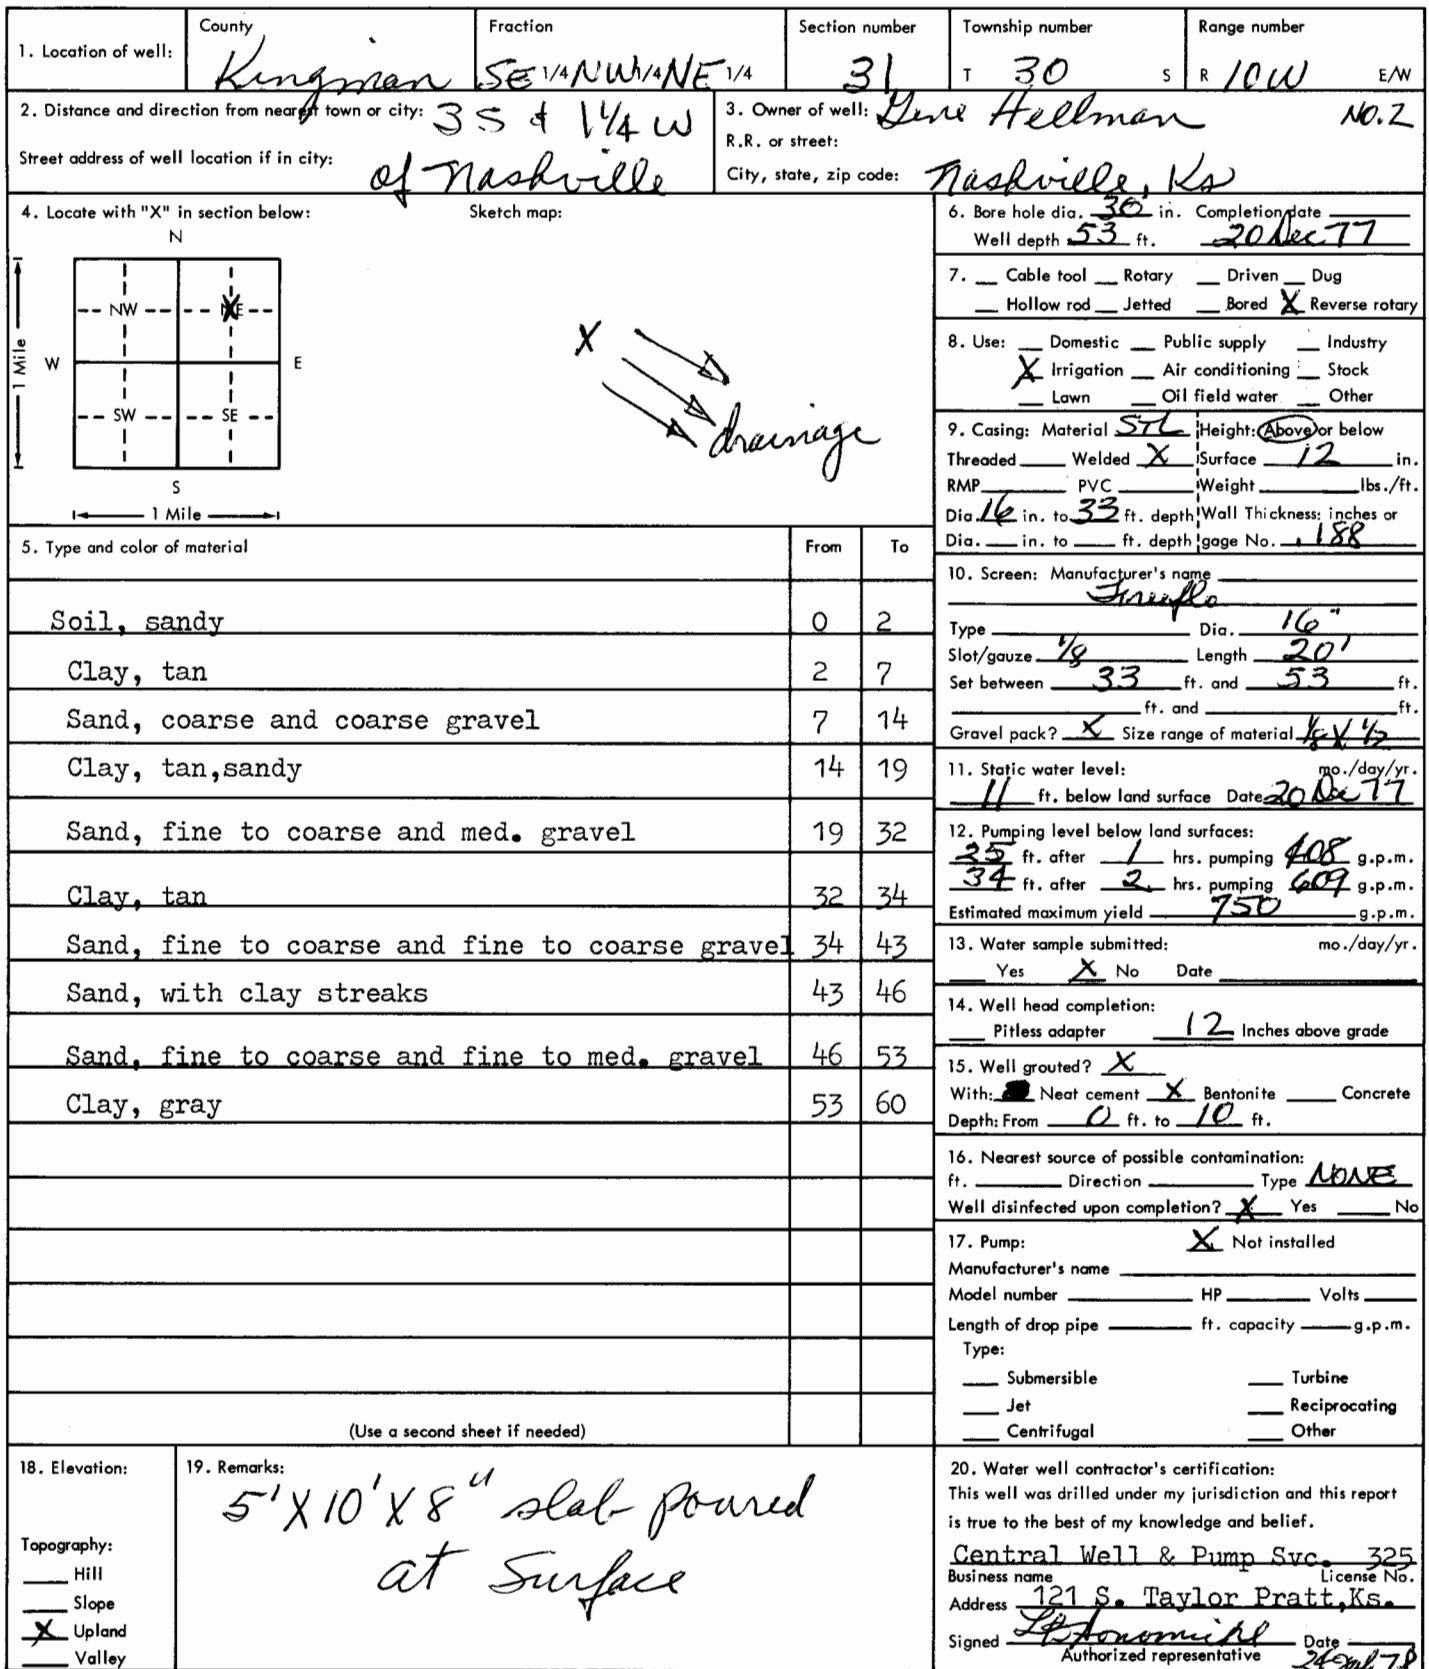 1. Location of well: County Kingman Fraction SE 1/4 NW 1/4 NE 1/4 Section number 31 Township number T 30 S Range number R 10W E/W
2. Distance and direction from nearest town or city: 3 S & 1 1/4 W
of Nashville
Street address of well location if in city:
3. Owner of well: Gene Hellman NO.2
R.R. or street:
City, state, zip code: Nashville, Ks
4. Locate with "X" in section below: Sketch map:
N
NW NE
W E
1 Mile
SW SE
S
1 Mile
X
drainage
5. Type and color of material From To
Soil, sandy 0 2
Clay, tan 2 7
Sand, coarse and coarse gravel 7 14
Clay, tan,sandy 14 19
Sand, fine to coarse and med. gravel 19 32
Clay, tan 32 34
Sand, fine to coarse and fine to coarse gravel 34 43
Sand, with clay streaks 43 46
Sand, fine to coarse and fine to med. gravel 46 53
Clay, gray 53 60
(Use a second sheet if needed)
6. Bore hole dia. 30 in. Completion date
Well depth 53 ft. 20 Dec 77
7. Cable tool Rotary Driven Dug
Hollow rod Jetted Bored X Reverse rotary
8. Use: Domestic Public supply Industry
X Irrigation Air conditioning Stock
Lawn Oil field water Other
9. Casing: Material STL Height: Above or below
Threaded Welded X Surface 12 in.
RMP PVC Weight lbs./ft.
Dia. 16 in. to 33 ft. depth Wall Thickness: inches or
Dia. in. to ft. depth gage No. .188
10. Screen: Manufacturer's name
Type Dia. 16"
Slot/gauze 1/8 Length 20'
Set between 33 ft. and 53 ft.
ft. and ft.
Gravel pack? X Size range of material 1/8 X 1/2
11. Static water level: mo./day/yr.
11 ft. below land surface Date 20 Dec 77
12. Pumping level below land surfaces:
25 ft. after 1 hrs. pumping 408 g.p.m.
34 ft. after 2 hrs. pumping 609 g.p.m.
Estimated maximum yield 750 g.p.m.
13. Water sample submitted: mo./day/yr.
Yes X No Date
14. Well head completion:
Pitless adapter 12 Inches above grade
15. Well grouted? X
With: Neat cement X Bentonite Concrete
Depth: From 0 ft. to 10 ft.
16. Nearest source of possible contamination:
ft. Direction Type NONE
Well disinfected upon completion? X Yes No
17. Pump: X Not installed
Manufacturer's name
Model number HP Volts
Length of drop pipe ft. capacity g.p.m.
Type:
Submersible Turbine
Jet Reciprocating
Centrifugal Other
18. Elevation:
Topography:
Hill
Slope
X Upland
Valley
19. Remarks:
5' X 10' X 8" slab poured
at Surface
20. Water well contractor's certification:
This well was drilled under my jurisdiction and this report
is true to the best of my knowledge and belief.
Central Well & Pump Svc. 325
Business name License No.
Address 121 S. Taylor Pratt,Ks.
Signed Date
Authorized representative